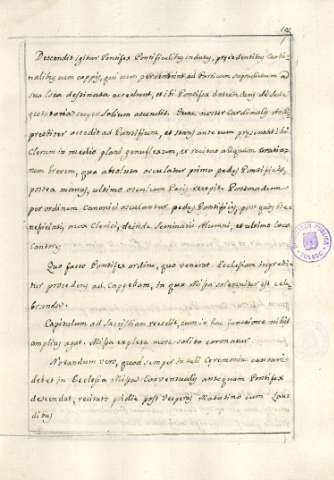 Descendit igitur Pontifex Pontificalibus indutus, precedentibus Cardi-
nalibus cum cappis, qui cum pervenerint ad
sua loca destinata accedunt, et ibi Pontifex
super solium ascendit. Cardinalis Archi
presbiter accedit ad Pontificem, et stans ante eum presentat
Clerum in medio plani genuflexum, et recitat aliquam oratio-
nem brevem, qua absoluta osculatur primo pedes Pontificis,
postea manus, ultimo osculum Pacis recipit. Postmodum
per ordinem Canonici osculantur pedes Pontificis, post quos Be-
neficiati, mox Clerici, deinde Seminarii Alumni, et ultimo loco
Cantores.
Quo facto Pontifex ordine, quo venerat Ecclesiam ingredi-
tur procedens ad Cappellam, in qua Missa solemnis est cele
branda.
Capitulum ad Sacristiam recedit, cum in hac functione nihil
amplius agat. Missa expleta more solito coronatur
Notandum vero, quod semper in tali Ceremonia cantari
debet in Ecclesia Missa Conventualis antequam Pontifex
descendat, recitato pridie post Vesperas Matutino cum Lau
dibus